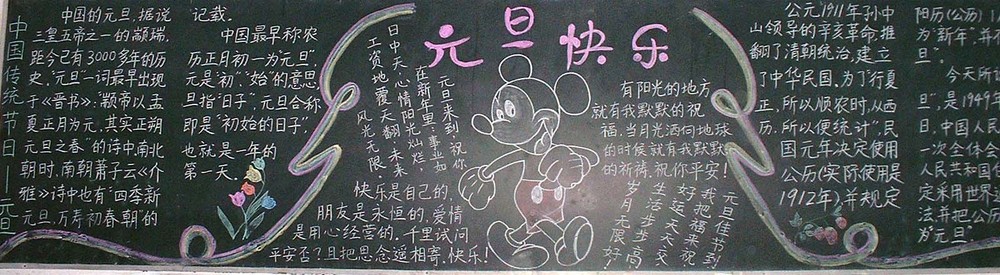 中国传统节日——元旦
中国的元旦，据说
三皇五帝之一的颛顼，
距今已有3000多年的历
史。"元旦"一词最早出现
于《晋书》："颛帝以孟
夏正月为元，其实正朔
元旦之春"的诗中，南北
朝时，南朝萧子云《介
雅》诗中也有"四季新
元旦，万寿初春朝"的
记载。
中国最早称农
历正月初一为"元旦"，
元是"初"、"始"的意思，
旦指"日子"，元旦合称
即是"初始的日子"，
也就是一年的
第一天。
元旦快乐
元旦来到，祝你
在新年里：事业如
日中天，心情阳光灿烂，
工资地覆天翻，未来
风光无限。
快乐是自己的，
朋友是永恒的，爱情
是用心经营的，千里试问
平安否？且把思念遥相寄，快乐！
有阳光的地方
就有我默默的祝
福，当月光洒向地球
的时候就有我默默
的祈祷，祝你平安！
元旦佳节到，
我把福来祝，
好运天天交，
生活步步高，
岁月无限好！
公元1911年，孙中
山领导的辛亥革命，推
翻了清朝统治，建立
了中华民国。为了"行夏
正，所以顺农时，从西
历，所以便统计"，民
国元年决定使用
公历(实际使用是
1912年)，并规定
阳历(公历)1
为"新年"，并
"元旦"。
今天所
旦"，是1949
日，中国人民
一次全体会
人民共和国
定采用世界
法，并把公历
为"元旦"